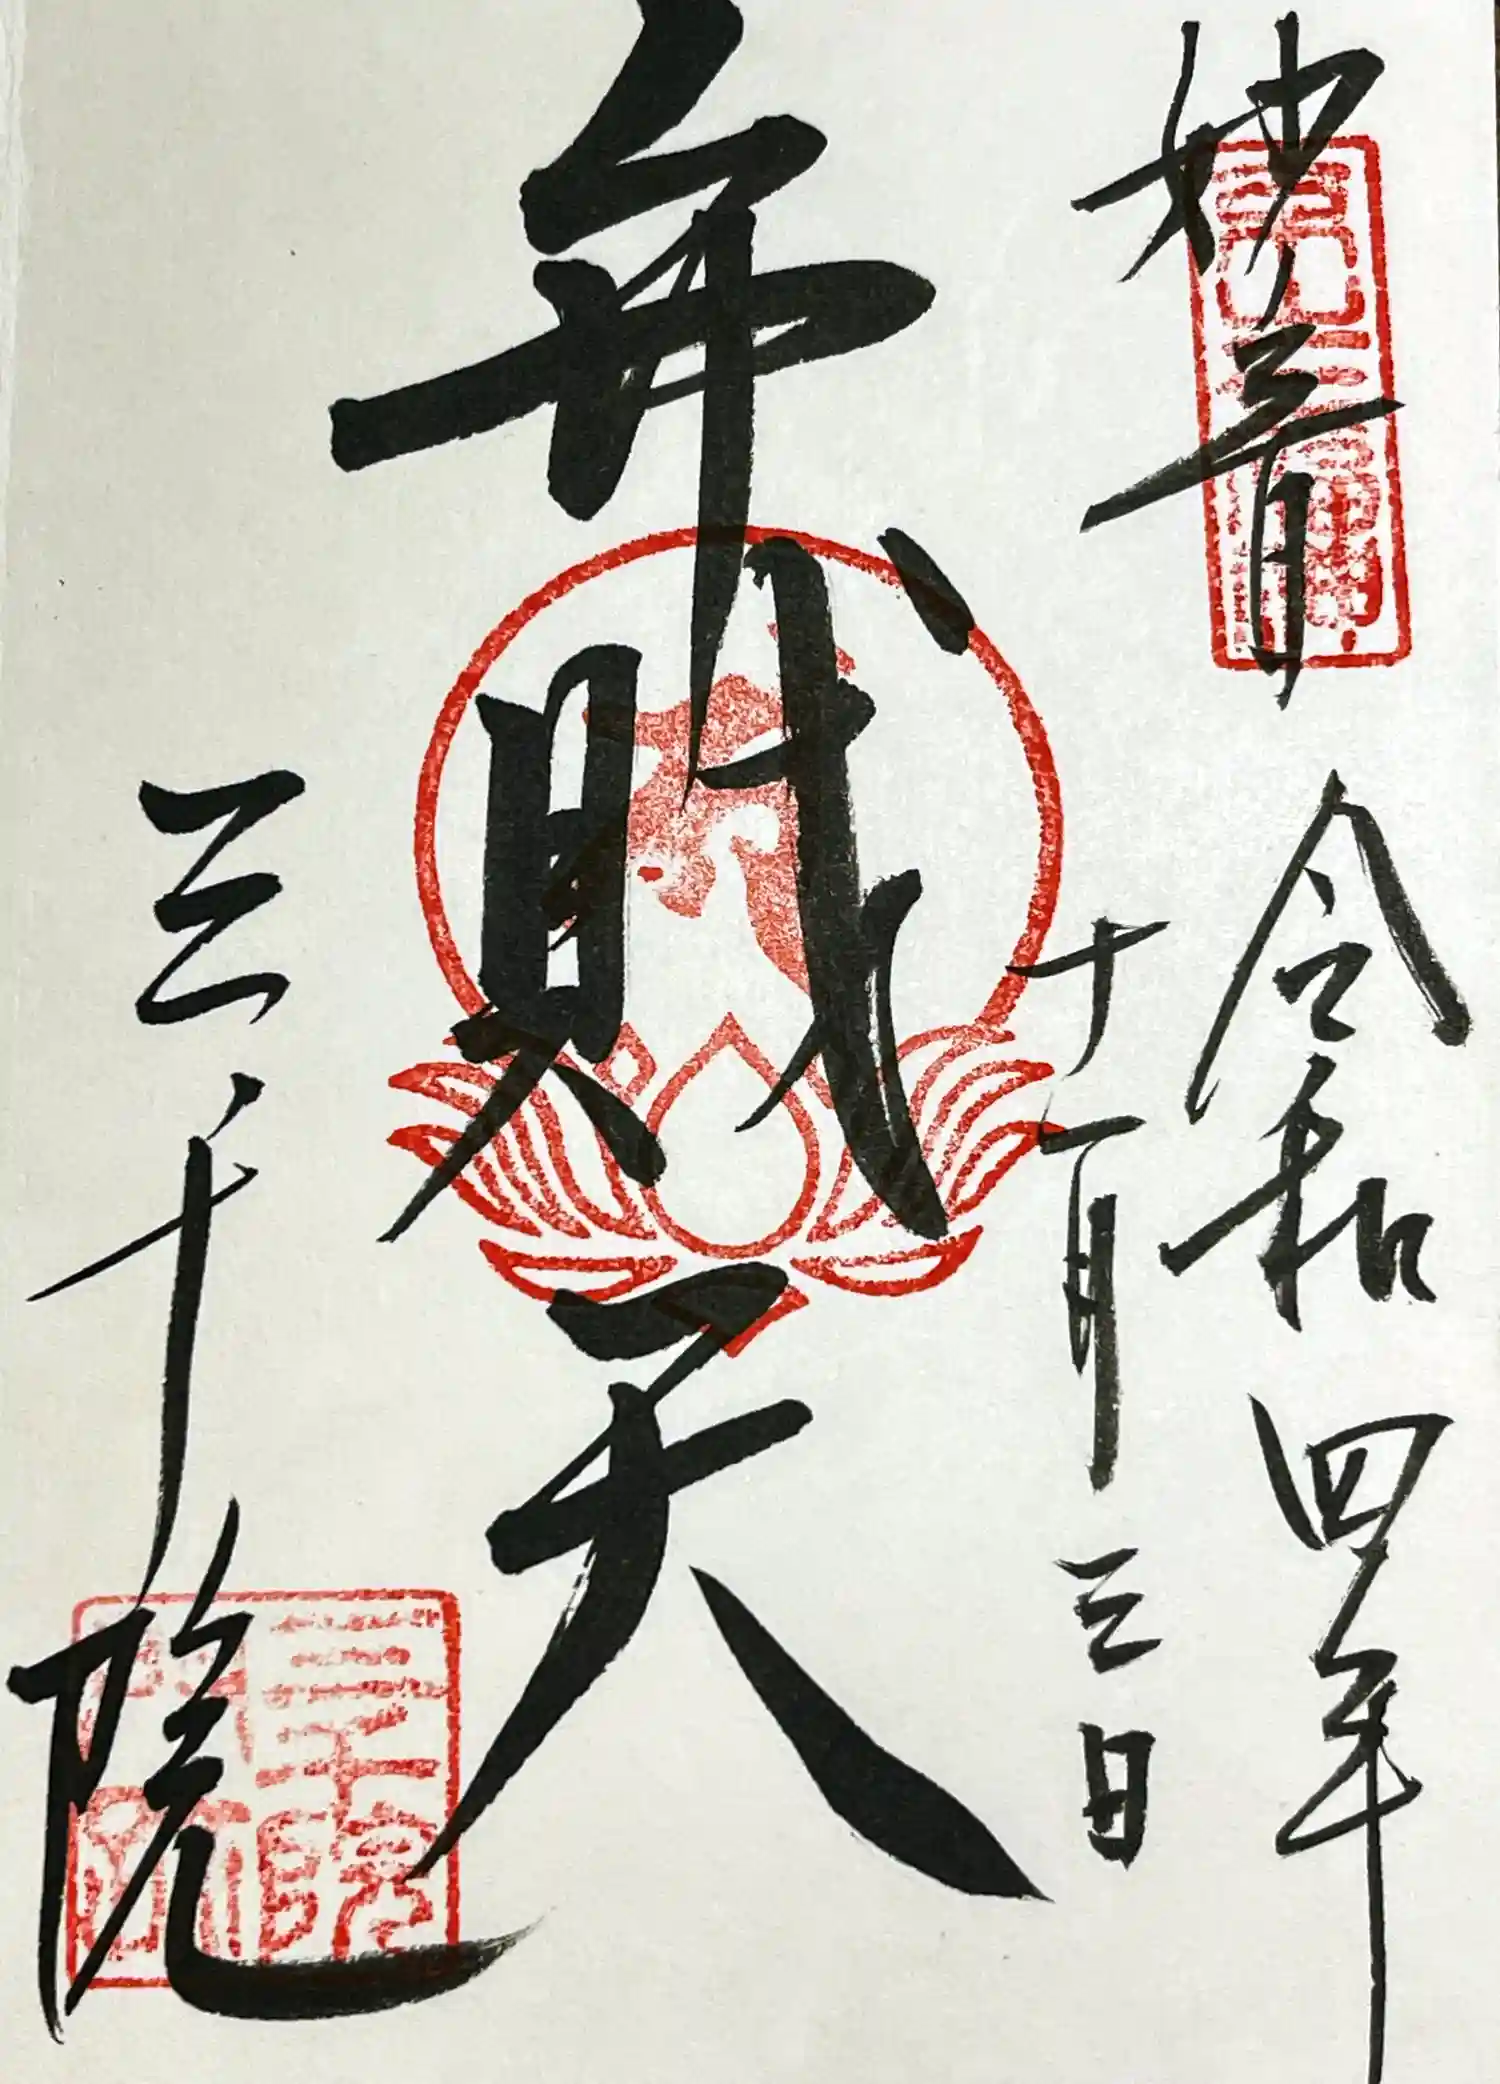 妙音
令和四年
十一月三日
弁財天
三千院